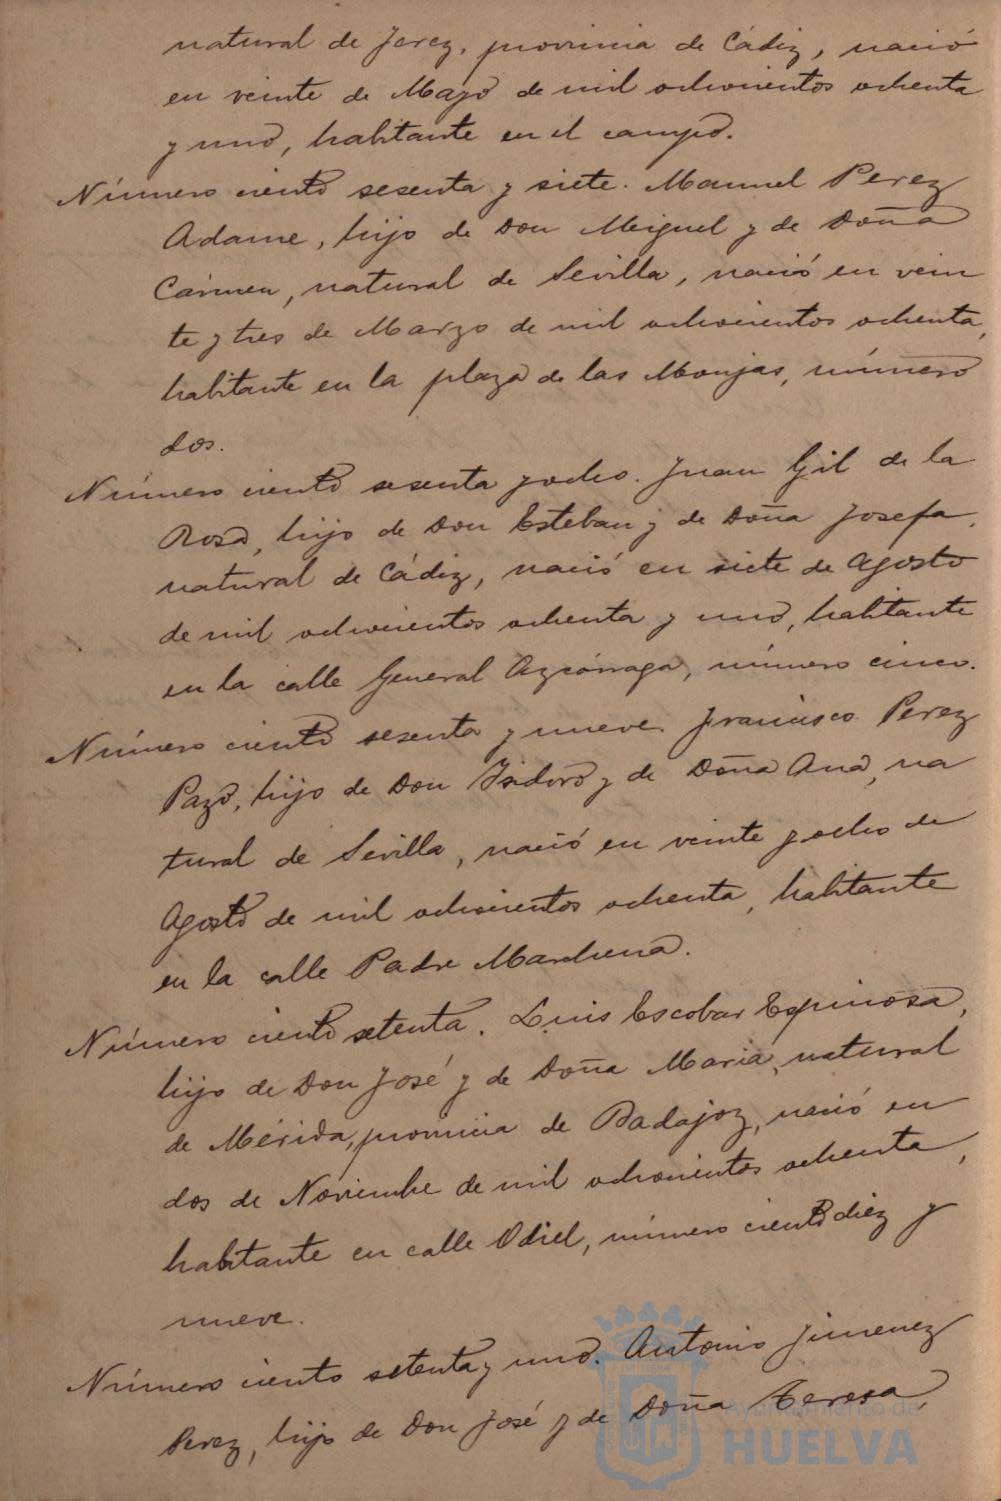 natural de Jerez, provincia de Cádiz, nació
en veinte de Mayo de mil ochocientos ochenta
y uno, habitante en el campo.
Número ciento sesenta y siete. Manuel Perez
Adame, hijo de Don Miguel y de Doña
Cármen, natural de Sevilla, nació en vein
te y tres de Marzo de mil ochocientos ochenta,
habitante en la plaza de las Monjas, número
dos.
Número ciento sesenta y ocho. Juan Gil de la
Rosa, hijo de Don Esteban y de Doña Josefa,
natural de Cádiz, nació en siete de Agosto
de mil ochocientos ochenta y uno, habitante
en la calle General Azcárraga, número cinco.
Número ciento sesenta y nueve. Francisco Perez
Pazo, hijo de Don Isidoro y de Doña Ana, na
tural de Sevilla, nació en veinte y ocho de
Agosto de mil ochocientos ochenta, habitante
en la calle Padre Marchena.
Número ciento setenta. Luis Escobar Espinosa,
hijo de Don José y de Doña Maria, natural
de Mérida, provincia de Badajoz, nació en
dos de Noviembre de mil ochocientos ochenta,
habitante en calle Odiel, número ciento diez y
nueve.
Número ciento setenta y uno. Antonio Jimenez
Perez, hijo de Don José y de Doña Teresa,
Ayuntamiento de
HUELVA